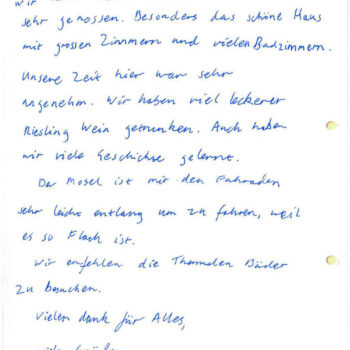 sehr genossen. Besonders das schöne Haus
mit grossen Zimmern und vielen Badzimmern.
Unsere Zeit hier war sehr
angenehm. Wir haben viel leckerer
Riesling Wein getrunken. Auch haben
wir viele Geschichte gelernt.
Da Mosel ist mit den Fahraden
sehr leicht entlang um zu fahren, weil
es so Flach ist.
Wir empfehlen die Thermalen Bäder
zu besuchen.
Vielen dank für Alles,